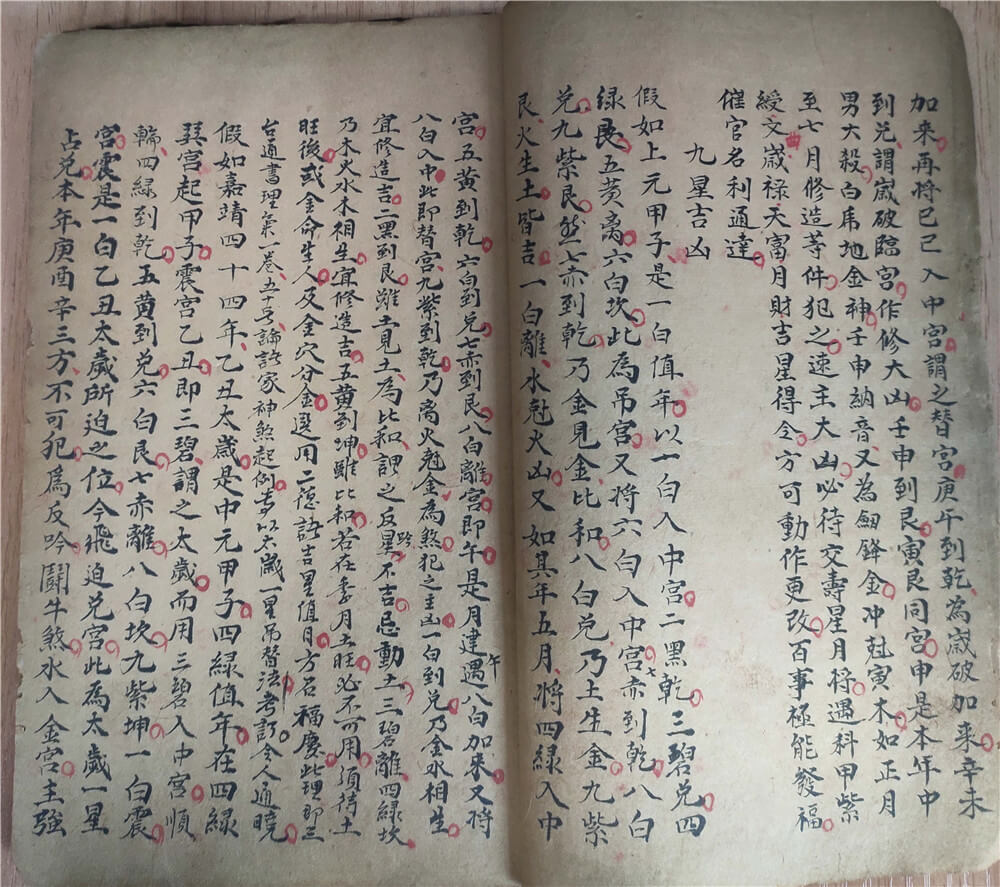 加来再将己巳入中宫謂之替宫庚午到乾為歲破加来辛未
到兑謂歲破臨宫作修大凶壬申到艮寅艮同宫申是本年中
男大殺白虎地金神壬申納音又為劔鋒金冲尅寅木如正月
至七月修造等件犯之速主大凶必待交壽星月将遇科甲紫
綬文歲禄天富月財吉星得令方可動作更改百事極能發福
催官名利通達
九星吉凶
假如上元甲子是一白值年以一白入中宫二黑乾三碧兑四
绿艮五黄离六白坎此為吊宫又将六白入中宫七赤到乾八白
兑九紫艮然七赤到乾乃金見金比和八白兑乃土生金九紫
艮火生土皆吉一白離水尅火凶又如其年五月将四緑入中
宫五黄到乾六白到兑七赤到艮八白離宫即午是月建遇八白加来又将
八白入中此即替宫九紫到乾乃离火尅金為煞犯之主凶一白到兑乃金水相生
宜修造吉二黑到艮雖土見土為比和謂之反星不吉忌動土三碧離四緑坎
乃木火水木相生宜修造吉五黄到坤雖比和若在季月土旺必不可用須待土
旺後或金命生人及金穴分金選用二德諸吉星值月方召福慶此理即三
台通書理氣一卷五十号論諸家神煞起例多以太歲一星吊替法考訂令人通曉
假如嘉靖四十四年乙丑太歲是中元甲子四緑值年在四緑
巽宫起甲子震宫乙丑即三碧謂之太歲而用三碧入中宫順
輪四緑到乾五黄到兑六白艮七赤離八白坎九紫坤一白震
宫震是一白乙丑太歲所迫之位今飛迫兑宫此為太歲一星
占兑本年庚酉辛三方不可犯為反吟鬭牛煞水入金宫主強